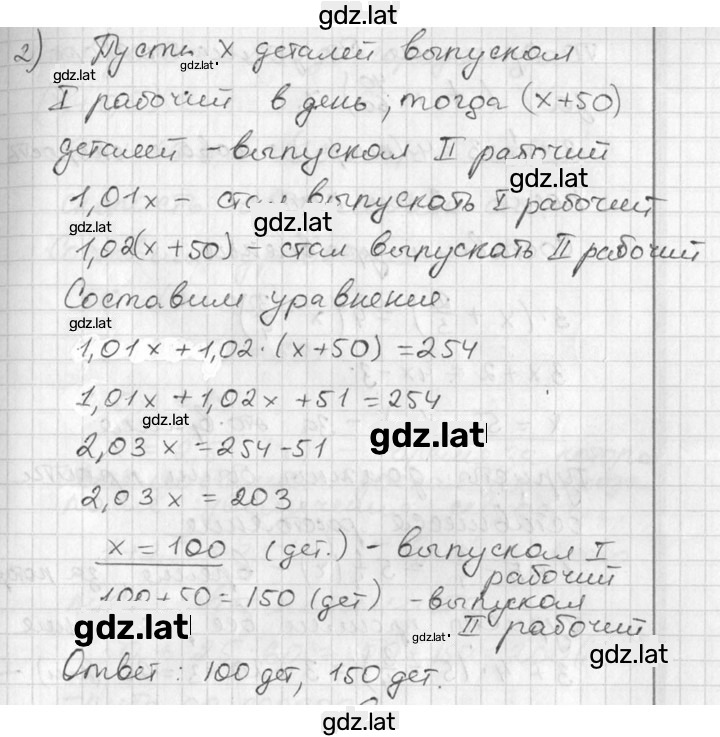 gdz.lat
2) Пусть x деталей выпускал
gdz.lat gdz.lat
I рабочий в день, тогда (x+50)
деталей - выпускал II рабочий
gdz.lat
1,01x - стал выпускать I рабочий
gdz.lat gdz.lat
1,02(x+50) - стал выпускать II рабочий
Составим уравнение:
gdz.lat
1,01x + 1,02·(x+50) = 254
1,01x + 1,02x + 51 = 254
gdz.lat gdz.lat
2,03x = 254-51
2,03x = 203
x = 100 (дет.) - выпускал I
рабочий
100+50 = 150 (дет) - выпускал
gdz.lat gdz.lat II рабочий
gdz.lat
Ответ: 100 дет, 150 дет.
gdz.lat